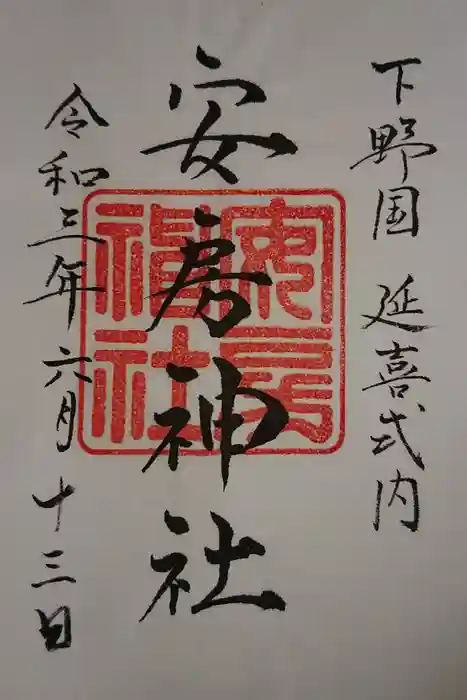 下野国 延喜式内
安房神社
安房神社
令和三年六月十三日